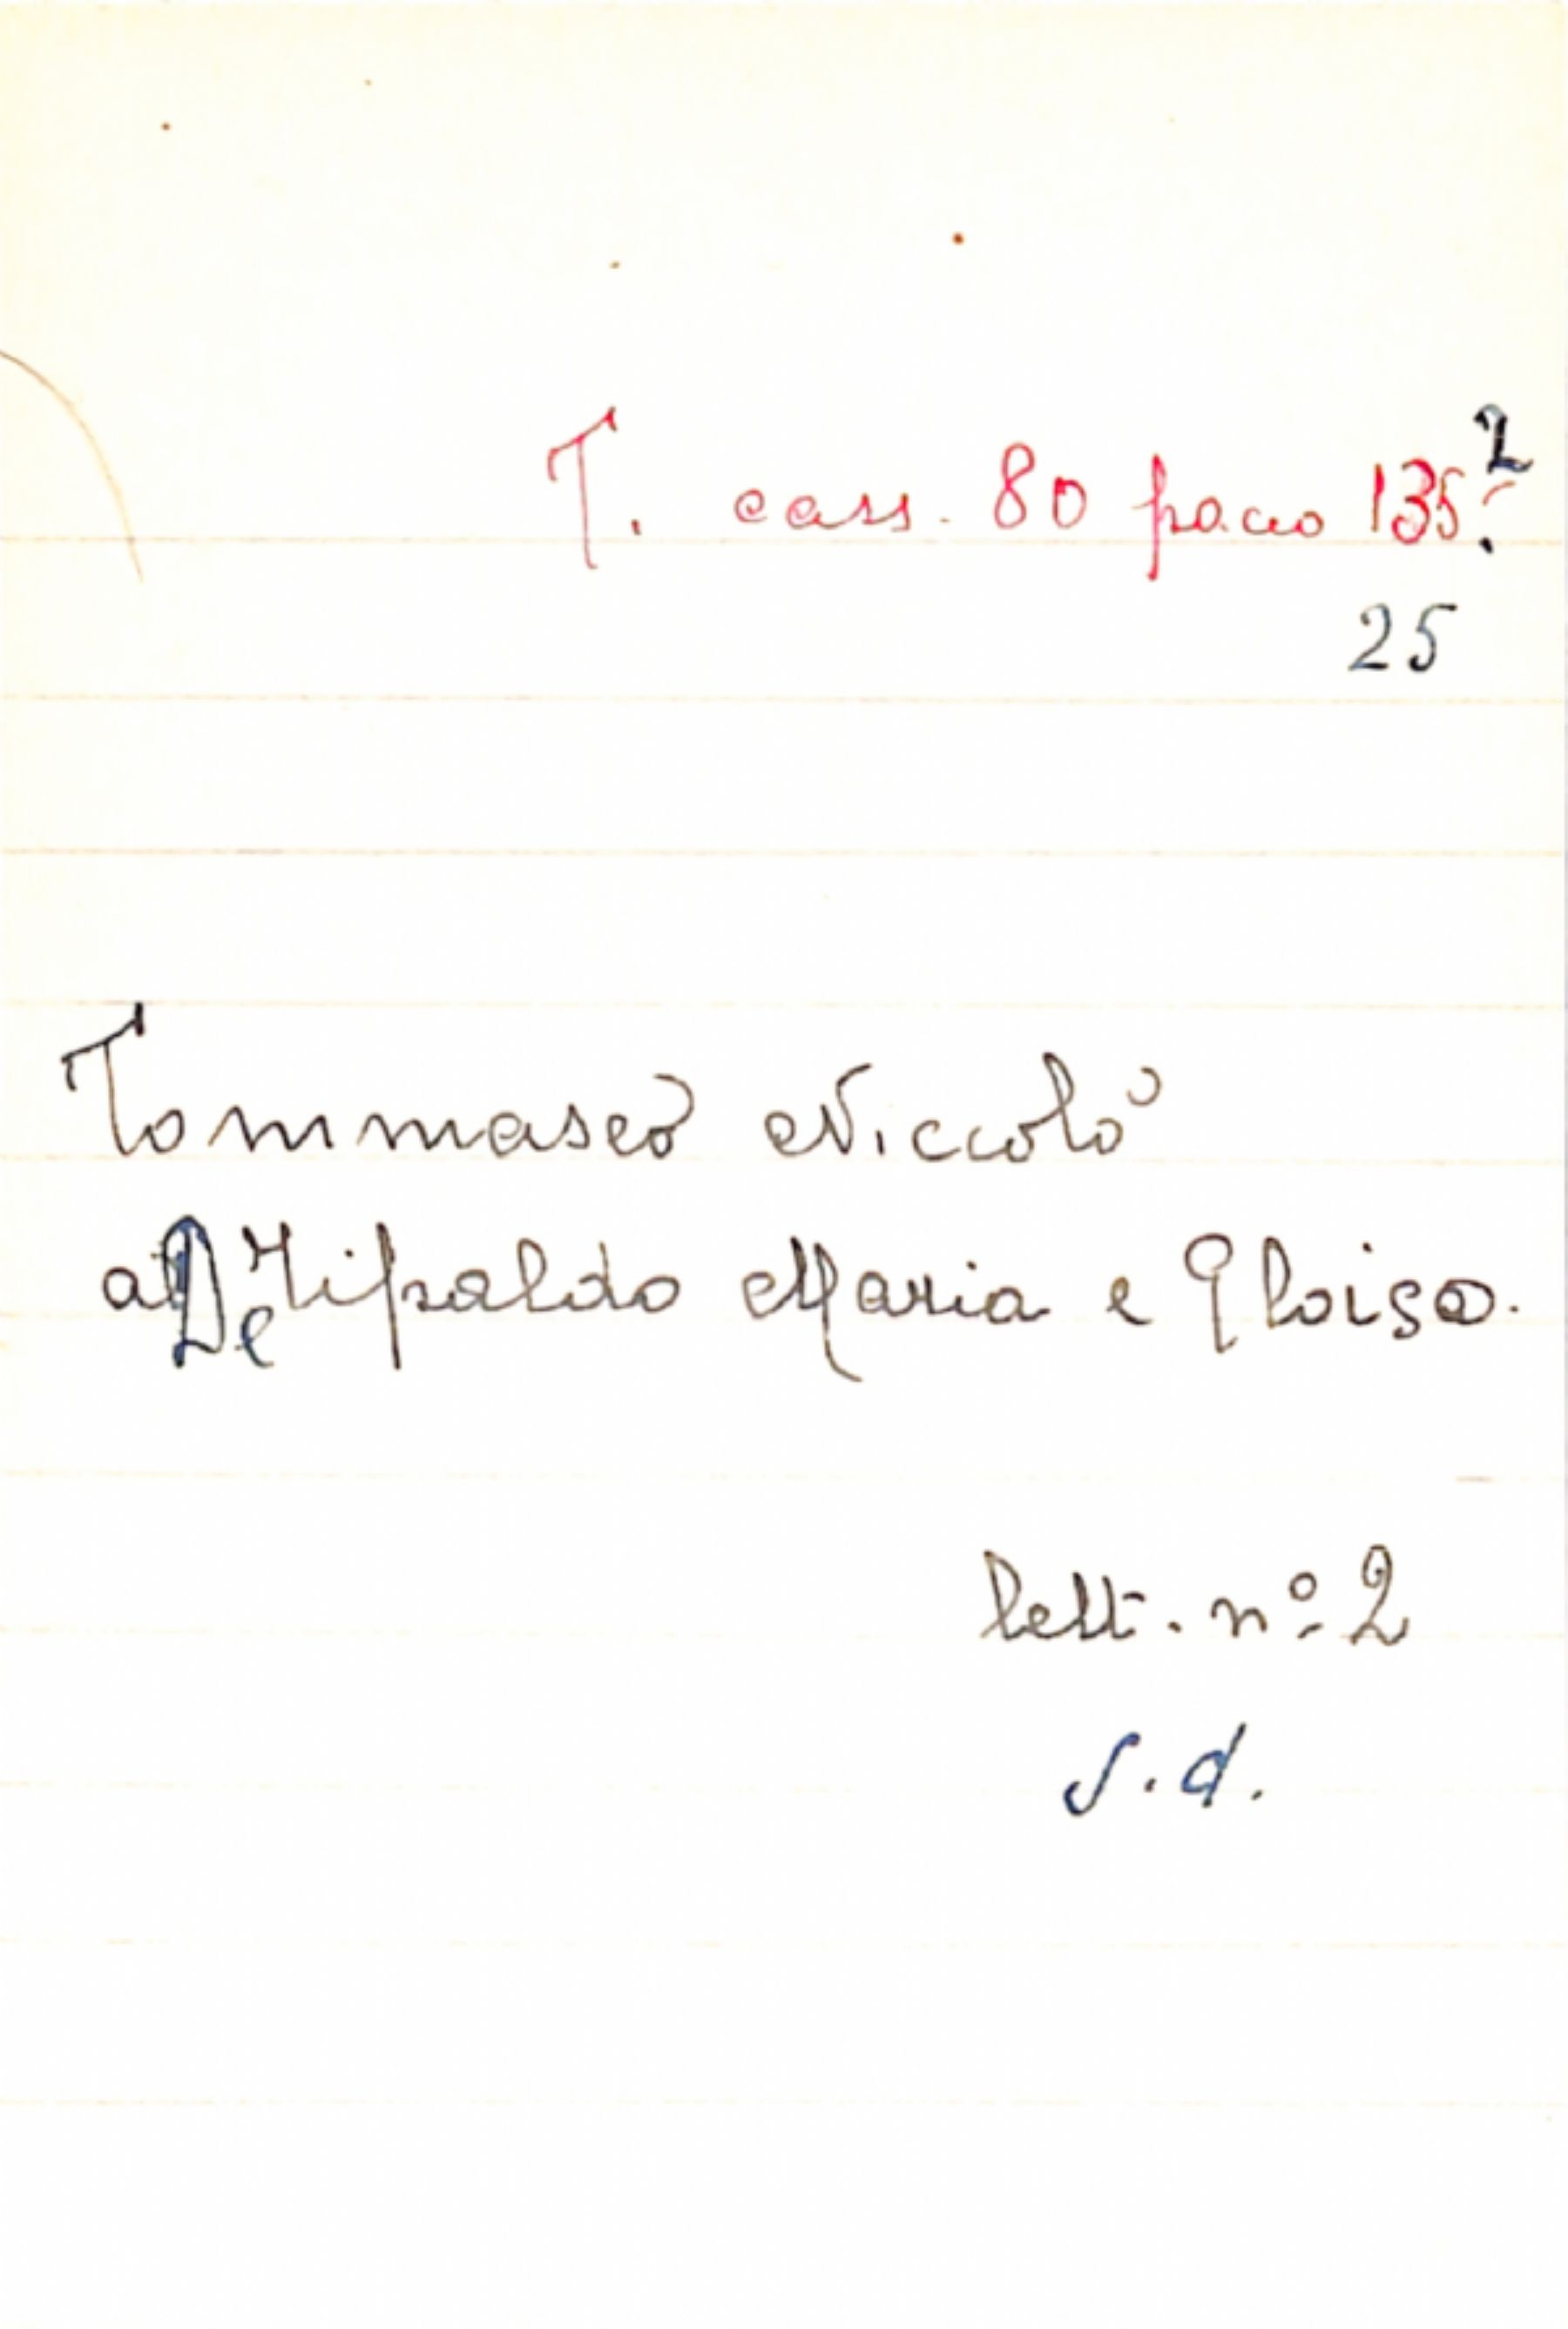 T. cass. 80 pacco 135.2
25
Tommaseo Niccolò
a De Tipaldo Maria e Eloisa.
lett. nº 2
S. d.